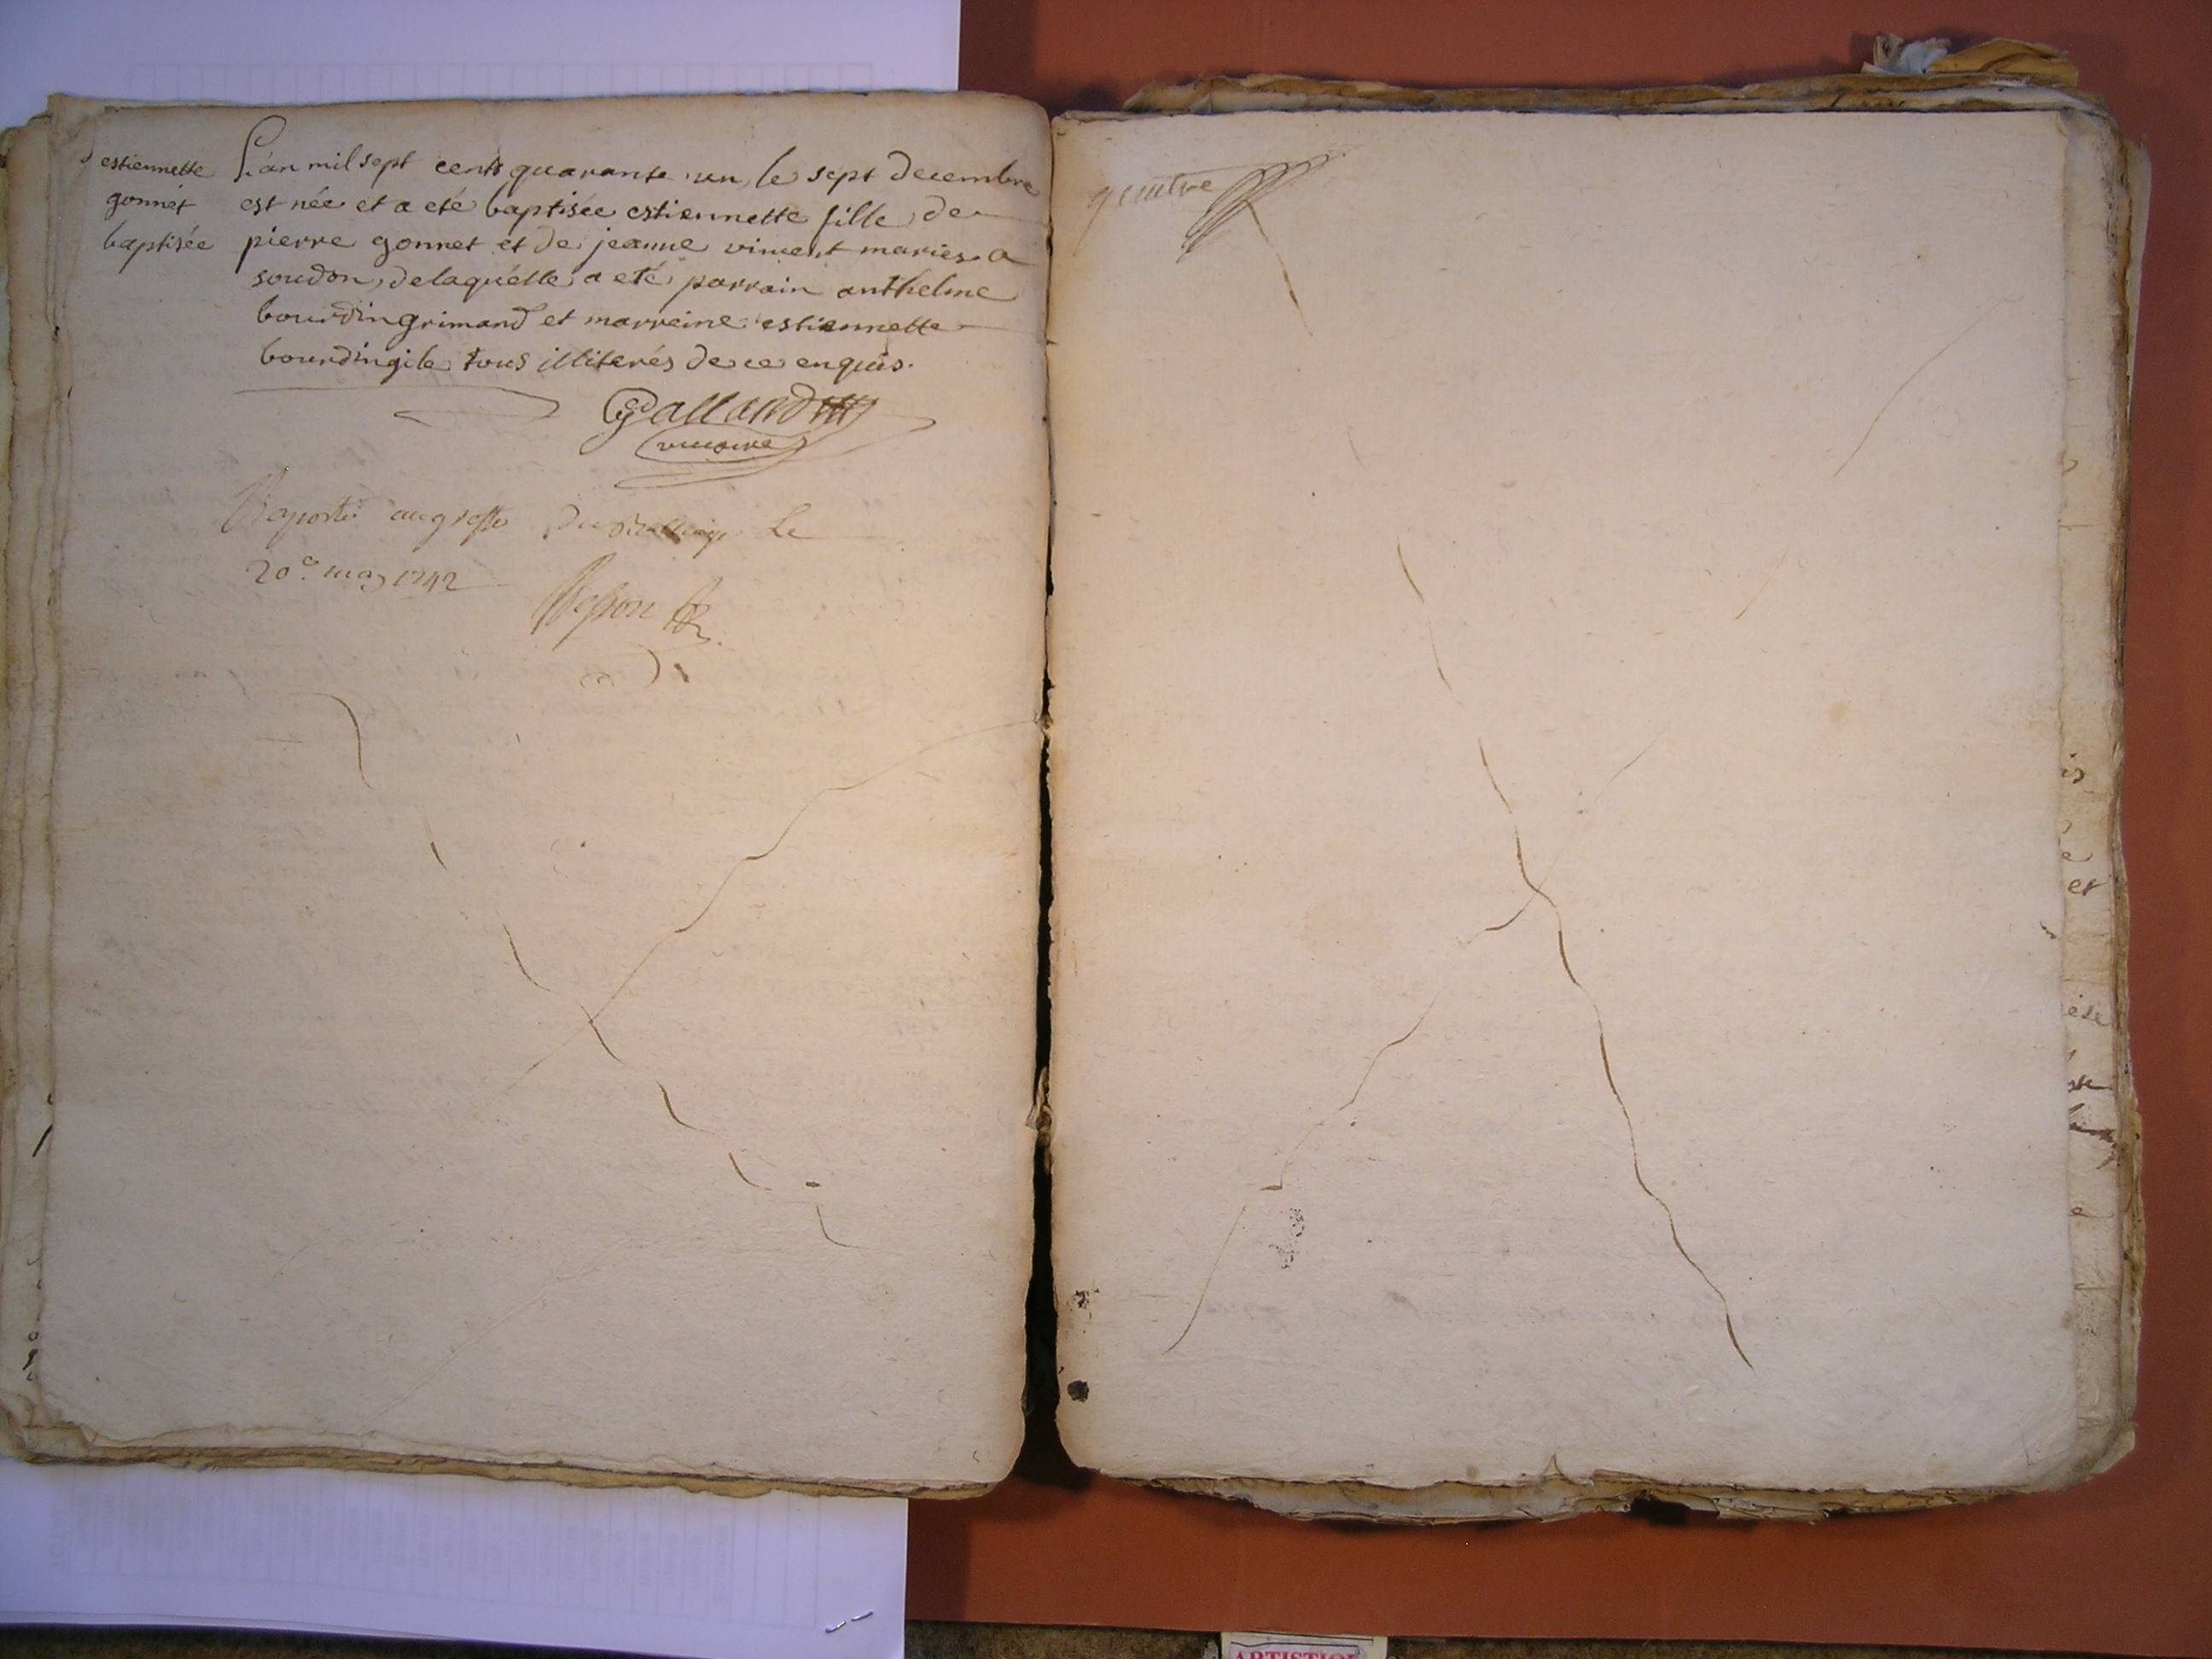 estiennette
gonnet
baptisée
L'an mil sept cents quarante un, le sept decembre
est née et a eté baptisée estiennette fille de
pierre gonnet et de jeanne vincent mariés a
soudon, delaquélle a eté parrain anthelme
bourdingrimand et marreine estiennette
bourdingile tous illiterés de ce enquis.
Galland
vicaire
Raporté au greffe du Balliage Le
20e may 1742
quatre
et
ARTISTIQ